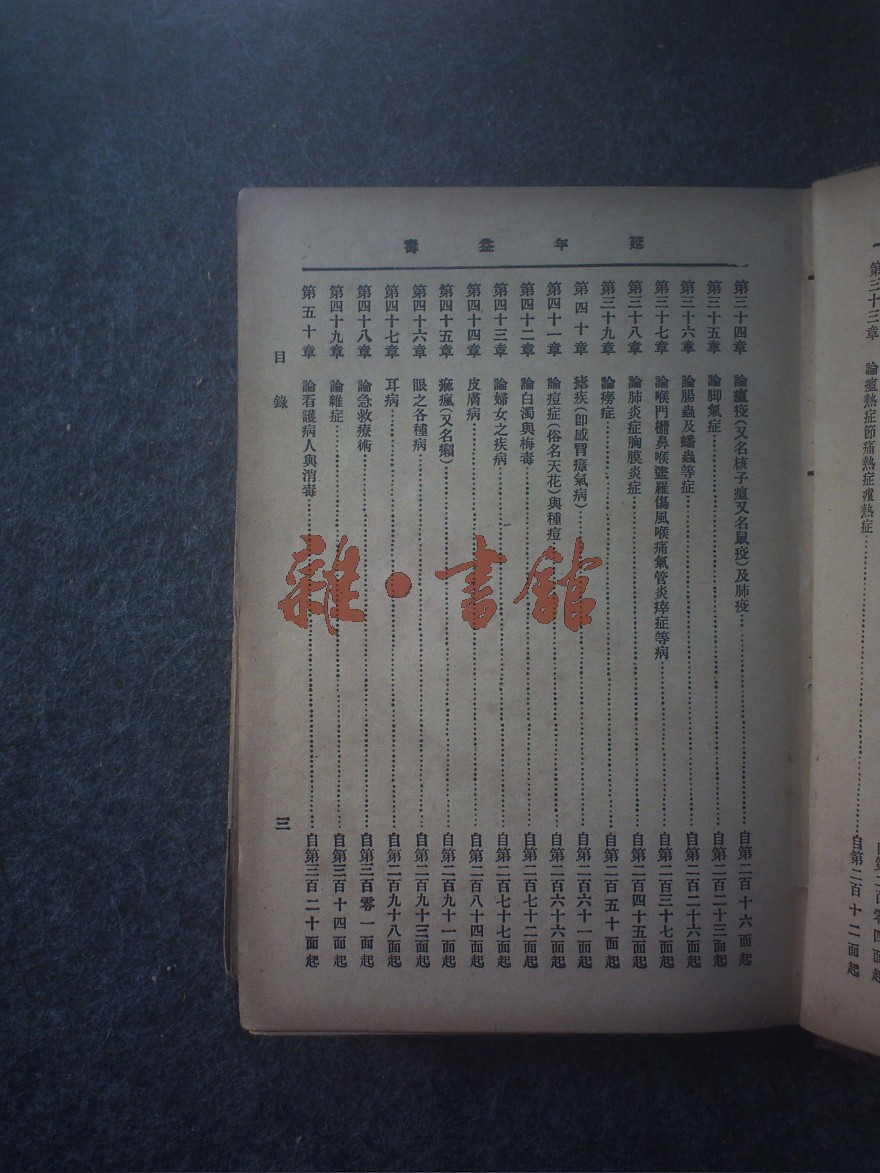 延年益壽
第三十三章 論瘟熱症節痛熱症瘧熱症 自第二百十二面起
第三十四章 論瘟疫(又名核子瘟又名鼠疫)及肺疫 自第二百十六面起
第三十五章 論脚氣症 自第二百二十三面起
第三十六章 論腸蟲及蟠蟲等症 自第二百二十六面起
第三十七章 論喉門柵鼻喉 羅傷風喉痛氣管炎 症等病 自第二百三十七面起
第三十八章 論肺炎症胸膜炎症 自第二百四十五面起
第三十九章 論癆症 自第二百五十面起
第四十章 (卽感冒療氣病) 自第二百六十一面起
第四十一章 論痘症(俗名天花)與種痘 自第二百六十六面起
第四十二章 論白濁與梅毒 自第二百七十二面起
第四十三章 論婦女之疾病 自第二百七十七面起
第四十四章 皮膚病 自第二百八十四面起
第四十五章 痲瘋(又名癩) 自第二百九十一面起
第四十六章 眼之各種病 自第二百九十三面起
第四十七章 耳病 自第二百九十八面起
第四十八章 論急救療術 自第三百零一面起
第四十九章 論雜症 自第三百十四面起
第五十章 論看護病人與消毒 自第三百二十面起
目錄
三
雜·書館